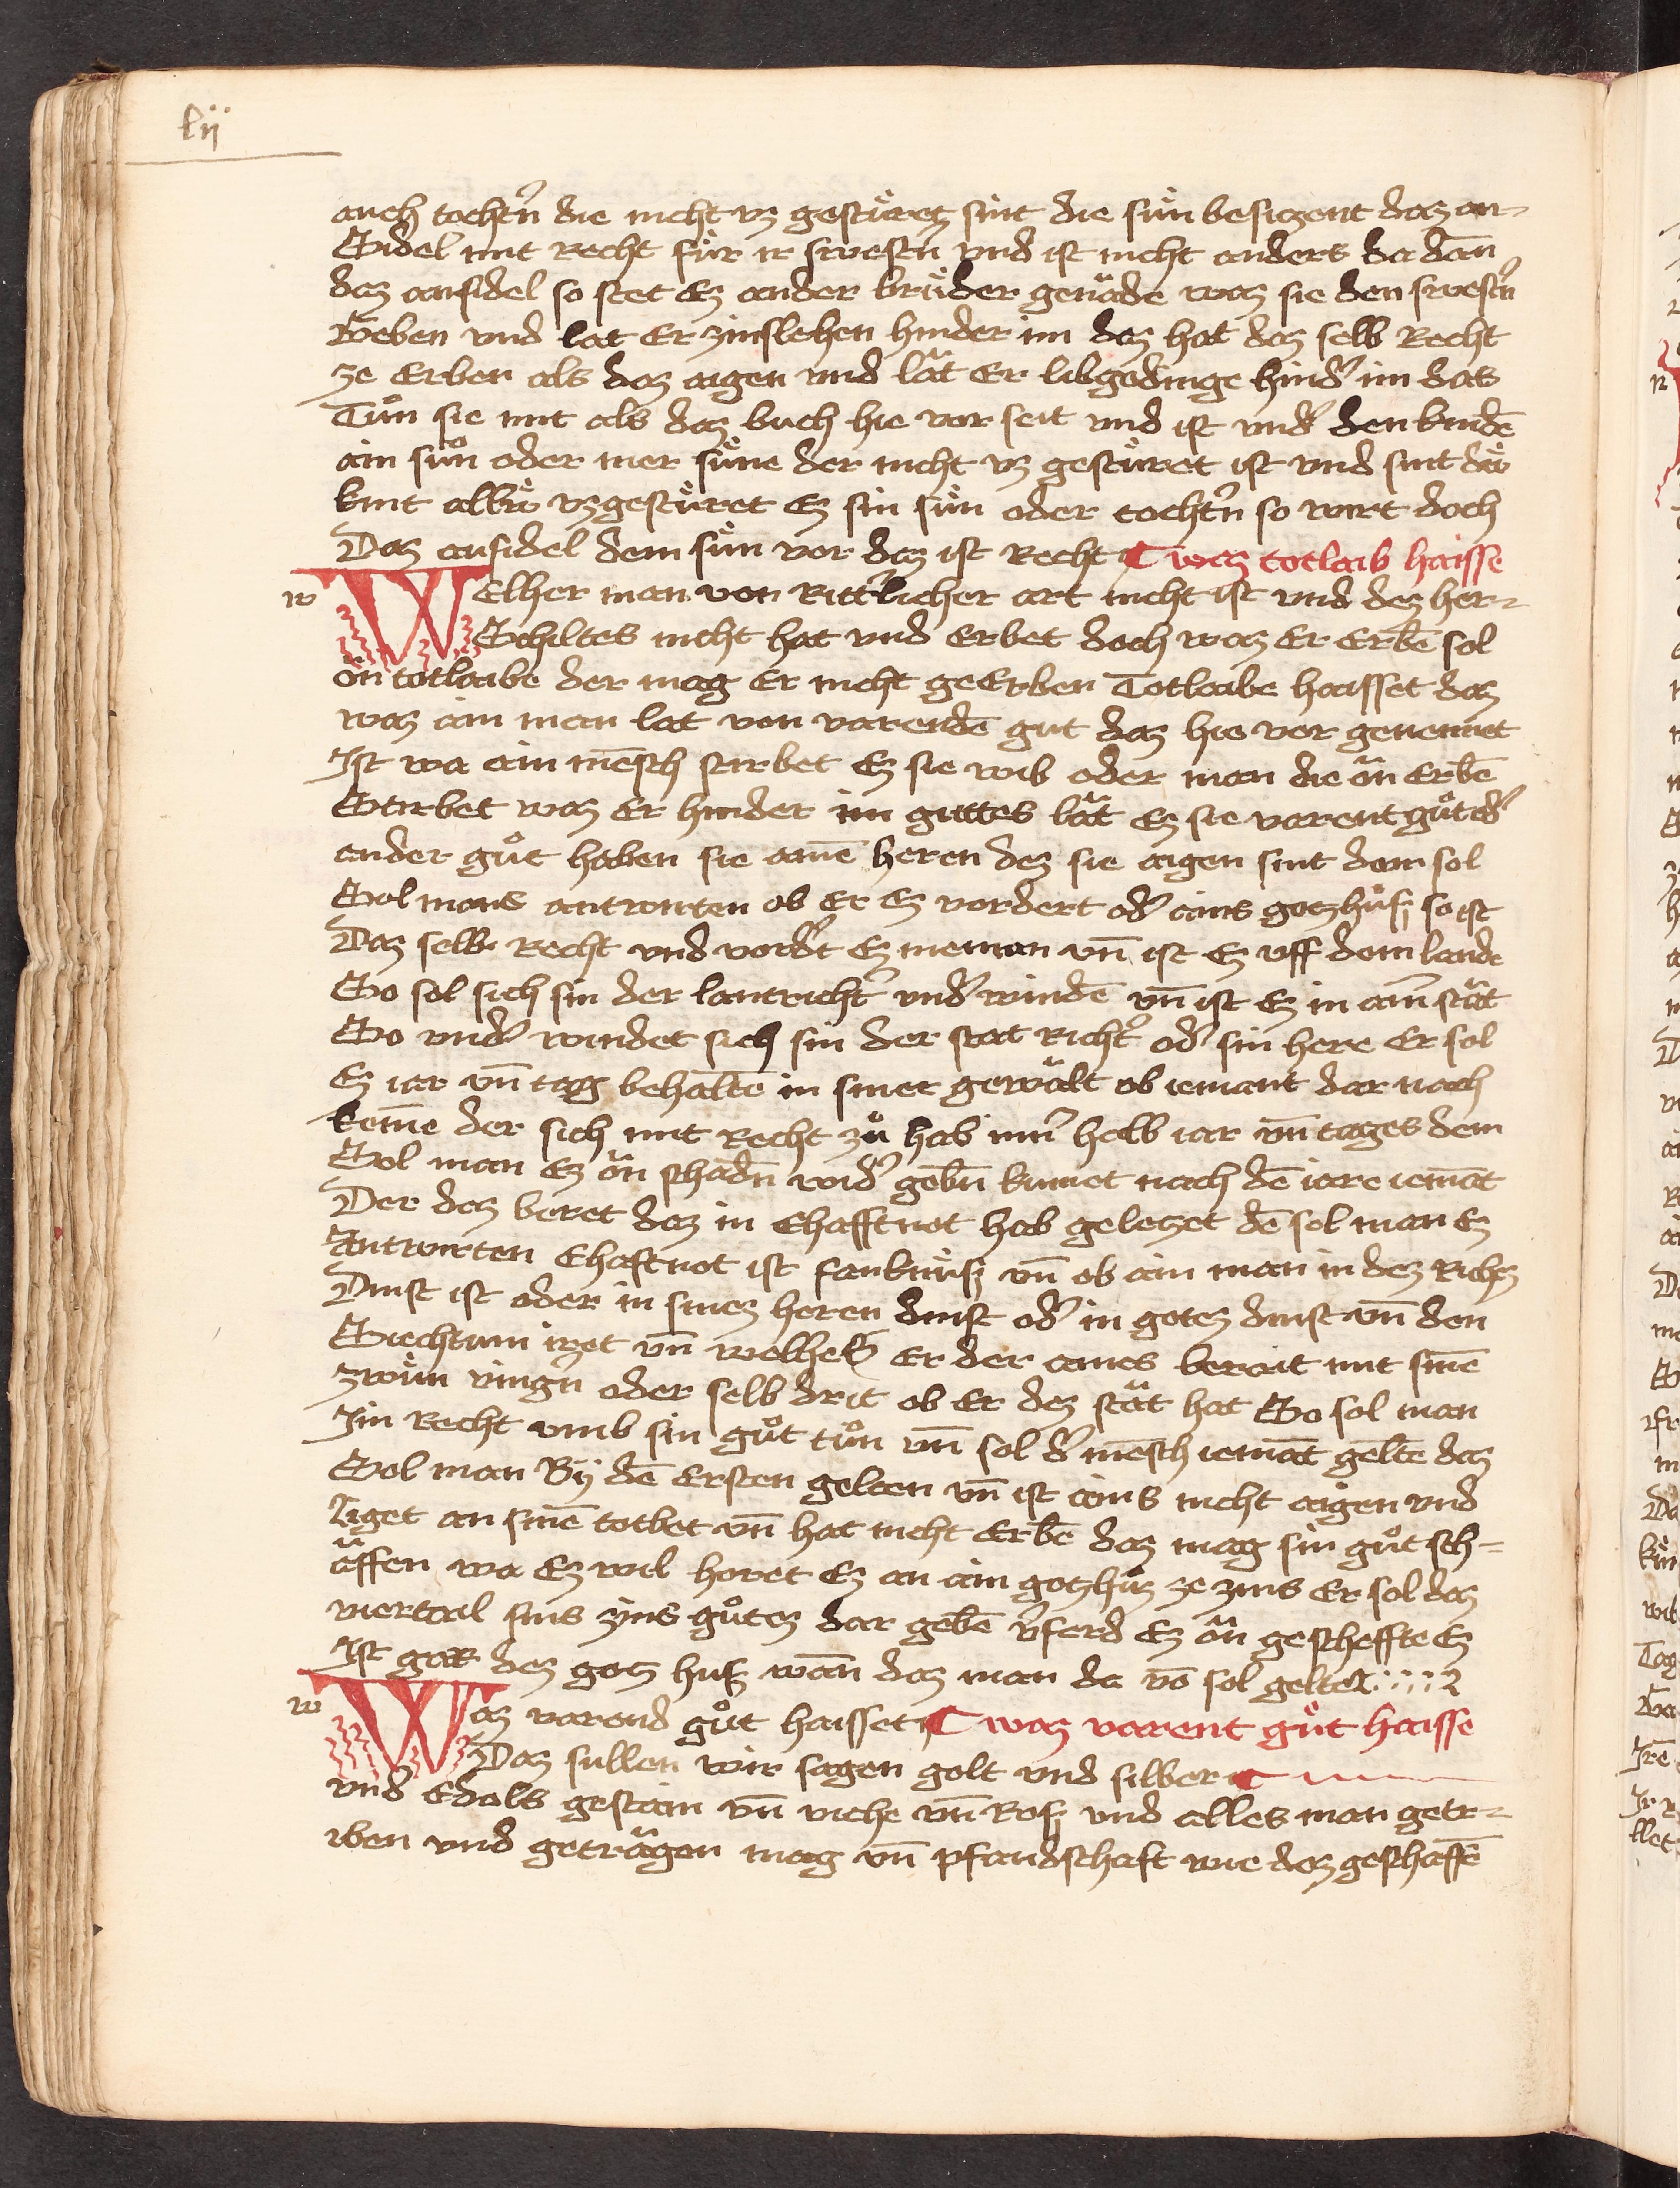 lij
auch tochtn̄ die nicht vz gestüretz sint die sün besizent daz an-
Sidel mit Recht für ir swestn̄ vnd ist nicht anders da dān
daz ansidel so stet Ez ander brüder genäde waz sie den swestn̄
Geben vnd lat Er zinslehen hinder im daz hat daz selb Recht
ze Erben als daz aigen vnd lät Er libgedinge hindʼ im das
Tůn sie mit als daz buch hie vor seit vnd ist vndʼ den kindē
ain sůn oder mer süne der nicht vz gestüret ist vnd sint dü
kint allü vzgestüret Ez sin sün oder tochtn̄ so wirt doch
Daz ansidel dem sün vor daz ist Recht ¶ waz totlaib haisse
w
WElher man von Rittʼlicher art nicht ist vnd dez her-
Schiltes nicht hat vnd Erbet doch waz Er Erbē sol
ön totlaibe der mag Er nicht geErben Totlaibe haisset daz
waz ain man lat von varendē gut daz hie vor genennet
Ist wa ain mēsch stirbet Ez sie wib oder man die än Erbē
Stirbet waz Er hinder im guttes lät Ez sie varent gůt odʼ
ander gůt haben sie ainē heren dez sie aigen sint dem sol
Sol mans antwurten ob Er Ez vordert odʼ ains gotzhůß so ist
Daz selb Recht vnd vordʼt Ez nieman vn̄ ist Ez vff dem lande
So sol sich sin der lantrichtʼ vndʼ windē vn̄ ist Ez in ainʼ stät
So vndʼ windet sich sin der stat Richtʼ odʼ sin here Er sol
Ez iar vn̄ tag behaltē in siner gewält ob iemant dar nach
kom̄e der sich mit Recht zů hab innʼ halb iar vn̄ tages dem
Sol man Ez än schadn̄ widʼ gebn̄ kumet nach dē iare iemāt
Der daz beret daz in Ehafftnot hab geletzet dē sol man Ez
Antwurten Ehaftnot ist fankniß vn̄ ob ain man in dez Richz
Dinst ist oder in sinez heren dinst odʼ in gotez dinst vn̄ den
Siechtum irret vn̄ welhes Er der aines berait mit sinē
zwüin vingʼn oder selb drit ob Er dez stät hat So sol man
Im Recht vmb sin gůt tůn vn̄ sol dʼ mēsch iemāt geltē daz
Sol man Bÿ dē Ersten gelten vn̄ ist ains nicht aigen vnd
Liget an sinē totbet vn̄ hat nicht Erbē daz mag sin gůt sch-
äffen wa Ez wil horet Ez an ain gotzhůz ze zins Er sol daz
viertail sins zins gůtez dar gebē vʼferd Ez än gescheffte Ez
Ist gar dez gotz huß wan̄ daz man da vō sol gelten
w
Waz varend gůt haisset ¶ waz varent gůt haisse
Daz sullen wir sagen golt vnd silber
vnd Edels gestain vn̄ viche vn̄ Roß vnd alles man getr-
iben vnd geträgen mag vn̄ pfandschaft wie daz geschaffē